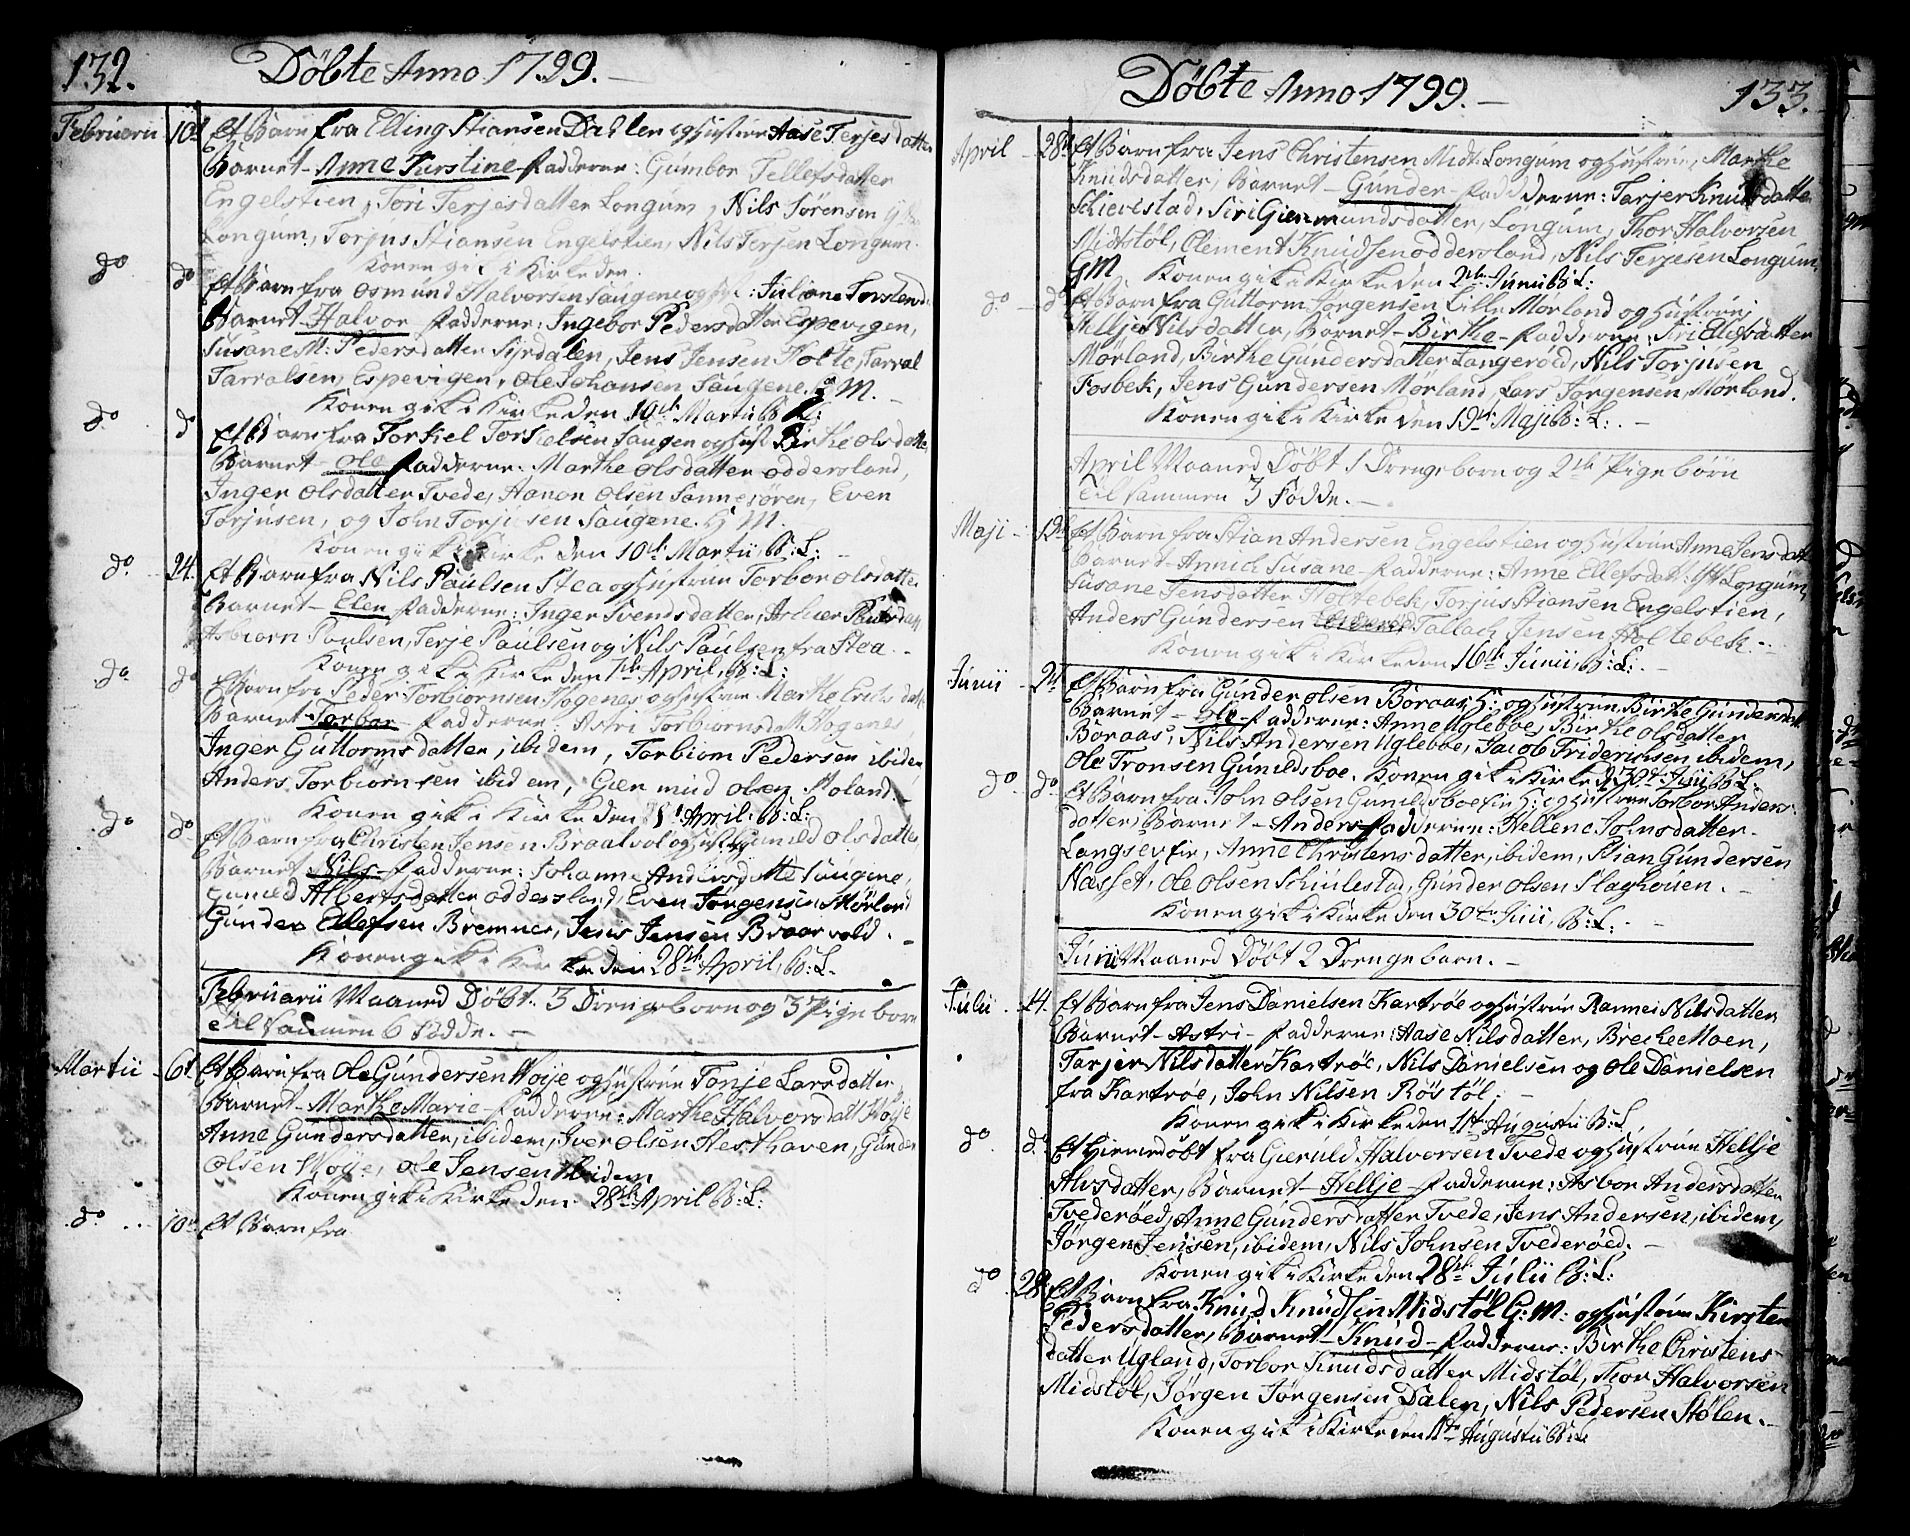 132. Döbte Anno 1799.
Februarii 10d Et Barn fra Elling Stiansen Dahlen og hustrue Aase Terjesdatter
Barnet - Anne Kirstine - Fadderne: Gumbor Tellefsdatter
Engelstien, Tori Terjesdatter Longum, Nils Sörensen
Longum, Torjus Stiansen Engelstien, Nils Terjsen Longum.
Konen gik i Kirke den.
do do Et Barn fra Osmund Halvorsen Saugene og h: Juliane Torstensd:
Barnet - Halvor - Fadderne: Ingebor Pedersdatter Espevigen,
Susane M: Pedersdatter Syrdalen, Jens Jensen Holte, Tarral
Tarralsen, Espevigen, Ole Johansen Saugene, G M.
Konen gik i Kirke den 10de Martii B: L:
do do Et Barn fra Torkel Torkielsen Saugen og hust Birthe Olsdatter
Barnet - Ole Fadderne: Marthe Olsdatter Oddersland,
Inger Olsdatter Tvede, Aanon Olsen Sannesören, Even
Torjusen, og John Torjusen Saugene. G M.
Konen gik i Kirke den 10d Martii, B: L: -
do 24. Et Barn fra Nils Paulsen Stea og hustrue Torbor Olsdatter
Barnet - Elen Fadderne: Inger Svendsdatter, Paulsdatt
Asbiorn Poulsen, Terje Paulsen og Nils Paulsen fra Stea. -
Konen gik i Kirke den 7de April, B: L:
do do Et Barn fra Peder Torbiornsen Hogenes og hustrue Marthe Erichsdatt
Barnet - Torbor - Fadderne: Astri Torbiornsdatt Hogenes
Inger Guttormsdatter, ibidem, Torbiom Pedersen ibidem
Anders Torbiornsen ibidem, Giermund Olsen Moland. -
Konen gik i Kirke den April: B: L:
do do Et Barn fra Christen Jensen Braatvol og hust Gunild Olsdatter,
Barnet Nils - Fadderne: Johanne Andersdatte Saugene,
Gunild Albertsdatter Oddersland, Even Jörgensen Mörland
Gunder Ellefsen Bremnes, Jens Jensen Braarvold. -
Konen gik i Kirke den 28de April, B: L.
Februarii Maaned Döbt: 3 Drengeborn og 3 Pigeborn
til Sammen 6 Födde. -
Martii - 6t. Et Barn fra Ole Gundersen Höije og hustrue Tonje Larsdatter
Barnet - Marthe Marie - Fadderne: Marthe Halvorsdatt Höije
Anne Gundersdatter, ibidem, Iver Olsen Hesthaven, Gunder
Olsen Höije, Ole Jensen ibidem
Konen gik i Kirke den 28de April B: L:
do . . 10d Et Barn fra
Döbte Anno 1799. - 133.
April - 28d Et Barn fra Jens Christensen Midt: Longum og hustrue, Marthe
Knudsdatter, Barnet - Gunder - Fadderne: Tarjer Knutsdatter
Skierestad, Siri Giermundsdatter, Longum, Thor Halvorsen
Midtstöl, Clement Knudsen Oddersland, Nils Terjesen Longum,
G M Konen gik i Kirke den 2de Junii B: L:
do - do Et Barn fra Guttorm Jörgensen Lille Mörland og hustrue
Hellje Nilsdatter, Barnet - Birthe - Fadderne: Siri Elefsdatter
Mörland, Birthe Gundersdatter Langeröed, Nils Torjusen
Fosbek, Jens Gundersen Mörland, Lars Jörgensen, Mörland.
Konen gik i Kirke den 19de Maji B: L: -
April Maaned Döbt 1 Drengeborn og 2de Pigebörn
til sammen 3 Födde. -
Maji - 12d Et Barn fra Stian Andersen Engelstien og hustrue Anne Jensdatt
Barnet - Annich Susane - Fadderne: Anne Ellefsdatt: Longum,
Susane Jensdatter Holtebek, Torjus Stiansen Engelstien,
Anders Gundersen Tallach Jensen Holtebek. -
Konen gik i Kirke den 16de Junii, B: L: -
Junii - 2d Et Barn fra Gunder Olsen Boraas, H: og hustrue Birthe Gundersdatt
Barnet - Ole - Fadderne: Anne Ugleboe, Birthe Olsdatter
Boraas, Nils Andersen Ugleboe, Jacob Friderichsen ibidem,
Ole Tronsen Gunildsboe. Konen gik i Kirke d 30de Junii B: L:
do do Et Barn fra John Olsen Gunildsboe og hustrue Torbor Anders-
datter, Barnet - Anders Fadderne: Hellene Johnsdatter
Langsev, Anne Christensdatter, ibidem, Stian Gundersen
Næsset, Ole Olsen Schiulestad, Gunder Olsen Slaghouen. -
Konen gik i Kirke den 30te Junii, B: L: -
Junii Maaned Döbt 2 Drengebarn. -
Julii . 14. Et Barn fra Jens Danielsen Kartröe og hustrue Rannei Nilsdatter
Barnet - Astri - Fadderne: Aase Nilsdatter, Brecke Moen,
Tarjer Nilsdatter Kartröe, Nils Danielsen og Ole Danielsen
fra Kartröe, John Nilsen Röstöl, -
Konen gik i Kirke den 11te Augustii B: L
do . do Et Hiemmedöbt fra Gieruld Halvorsen Tvede og hustrue Hellje
Alvsdatter, Barnet - Hellje - Fadderne: Asbor Andersdatter
Tvederöed, Anne Gundersdatter Tvede, Jens Andersen, ibidem,
Jörgen Jensen, ibidem, Nils Johnsen Tvederöed. -
Konen gik i Kirke den 28de Julii B: L:
do . 28d Et Barn fra Knud Knudsen Midstöl G: M: og hustrue Kirsten
Pedersdatter, Barnet - Knud - Fadderne: Birthe Christens
datter Ugland, Torbor Knudsdatter Midstöl, Thor Halvorsen
Midstöl, Jörgen Jörgensen Dalen, Nils Pedersen Stölen. -
Konen gik i Kirke den 11te Augustii B: L